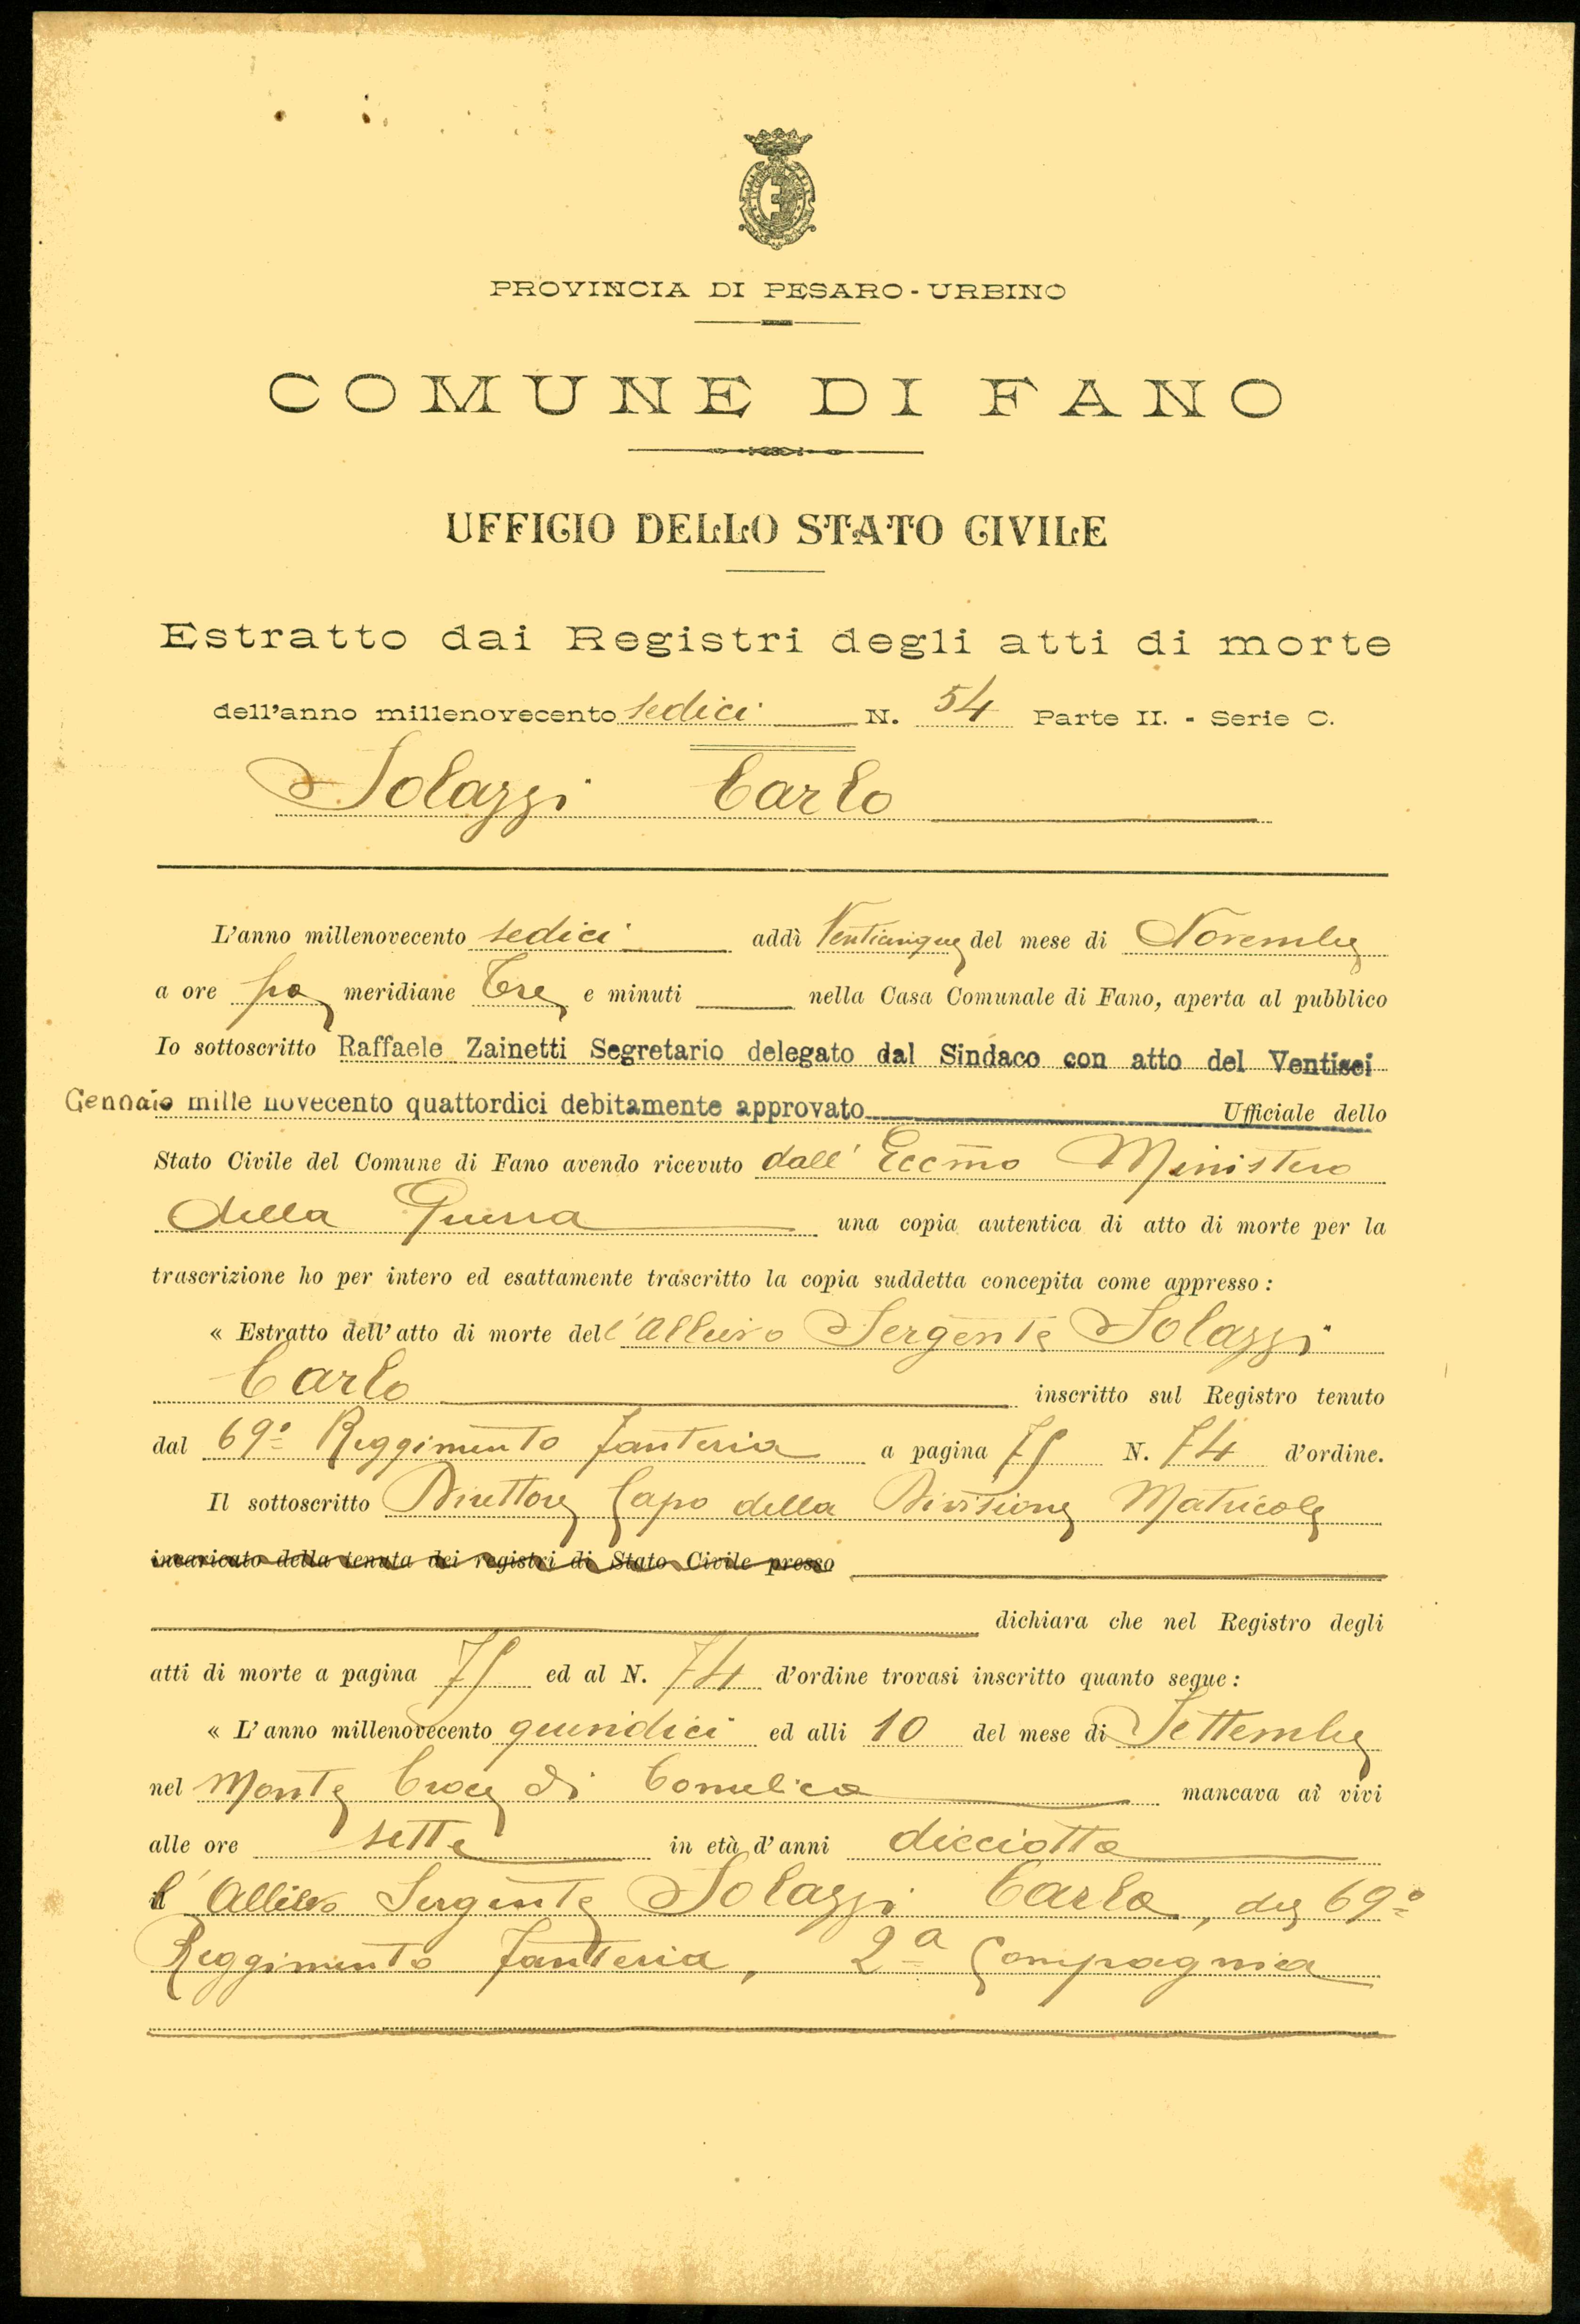 PROVINCIA DI PESARO-URBINO
COMUNE DI FANO
UFFICIO DELLO STATO CIVILE
Estratto dai Registri degli atti di morte
dell'anno millenovecento sedici N. 54 Parte II. - Serie C.
Solazzi Carlo
L'anno millenovecento sedici addì Venticinque del mese di Novembre
a ore po meridiane Tre e minuti nella Casa Comunale di Fano, aperta al pubblico
Io sottoscritto Raffaele Zainetti Segretario delegato dal Sindaco con atto del Ventisei
Gennaio mille novecento quattordici debitamente approvato Ufficiale dello
Stato Civile del Comune di Fano avendo ricevuto dall' Eccmo Ministero
della Guerra una copia autentica di atto di morte per la
trascrizione ho per intero ed esattamente trascritto la copia suddetta concepita come appresso:
« Estratto dell'atto di morte dell'Allievo Sergente Solazzi
Carlo inscritto sul Registro tenuto
dal 69º Reggimento Fanteria a pagina 75 N. 74 d'ordine.
Il sottoscritto Direttore Capo della Divisione Matricole
incaricato della tenuta dei registri di Stato Civile presso
dichiara che nel Registro degli
atti di morte a pagina 75 ed al N. 74 d'ordine trovasi inscritto quanto segue:
« L'anno millenovecento quindici ed alli 10 del mese di Settembre
nel Monte Croce di Comelico mancava ai vivi
alle ore sette in età d'anni diciotto
l'Allievo Sergente Solazzi Carlo, del 69º
Reggimento Fanteria, 2ª Compagnia